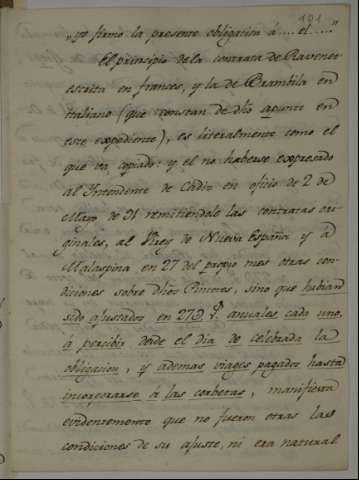 191
„yo firmo la presente obligacion á .... el ....."
El principio de la contrata de Ravenet
escrita en frances, y la de Brambila en
italiano (que constan de dho apunte en
este expediente), es literalmente como el
que va copiado: y el no haberse expresado
al Yntendente de Cadiz en oficio de 2 de
Mayo de 91 remitiendole las contratas ori-
ginales, al Virey de Nueva España y á
Malaspina en 27 del propio mes otras con-
diciones sobre dhos Pintores, sino que habian
sido ajustados en 27D anuales cada uno,
á percibir desde el dia de celebrada la
obligacion, y ademas viages pagados hasta
incorporarse á las corbetas, manifiesta
evidentemente que no fueron otras las
condiciones de su ajuste, ni era natural